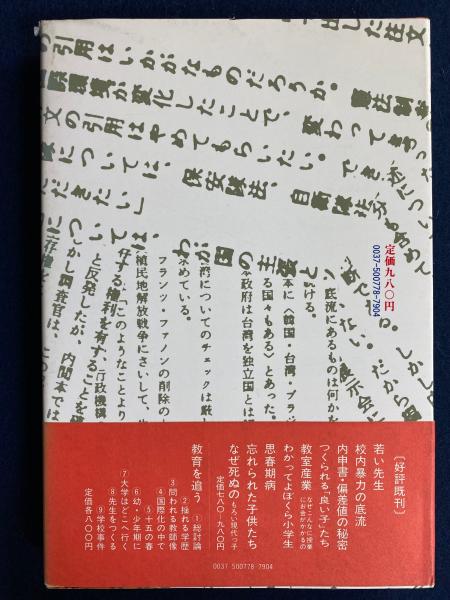 の引用はいかがなものだろうか。
が変化したことで、変わってきた
文の引用はやめてもらいたい。
については、保安隊法、自衛隊法
だきたい」
わが国の主張
定価九八〇円
0037-500778-7904
底流にあるものは何かを
ける。
本に〈韓国・台湾・ブラジ
る国々もある〉とあった。
政府は台湾を独立国とは
湾についてのチェックは厳し
めている。
フランツ・ファノンの削除の
植民地解放戦争にさいして、
する権利を有す、
「このようなことより
と反発したが、内閣本では
しかし調査官は、
〔好評既刊〕
若い先生
校内暴力の底流
内申書・偏差値の秘密
つくられる「良い子」たち
教室産業 なぜこんなに授業にお金がかかるの
わかってよぼくら小学生
思春期病
忘れられた子供たち
なぜ死ぬの もろい現代っ子
定価七八〇~九八〇円
教育を追う
①総討論
②揺れる学歴
③問われる教師像
④国際化の中で
⑤十五の春
⑥幼・少年期に
⑦大学はどこへ行く
⑧先生をつくる
⑨学校事件
定価各八〇〇円
0037 500778-7904